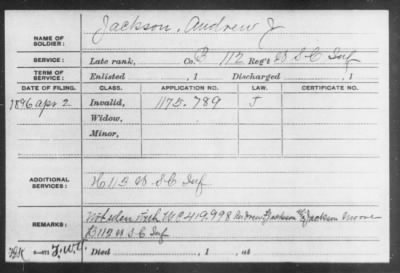 NAME OF SOLDIER: Jackson, Andrew J
SERVICE: Late rank, Co. B 112 Reg't U S C Inf
TERM OF SERVICE: Enlisted , 1 Discharged , 1
DATE OF FILING. CLASS. APPLICATION NO. LAW. CERTIFICATE NO.
1896 apr 2 Invalid, 1175.789 J
Widow,
Minor,
ADDITIONAL SERVICES: 112 U S C Inf
REMARKS: Not iden with 419.998 Andrew Jackson Jackson Moore
B 112 U S C Inf
Died , 1 , at